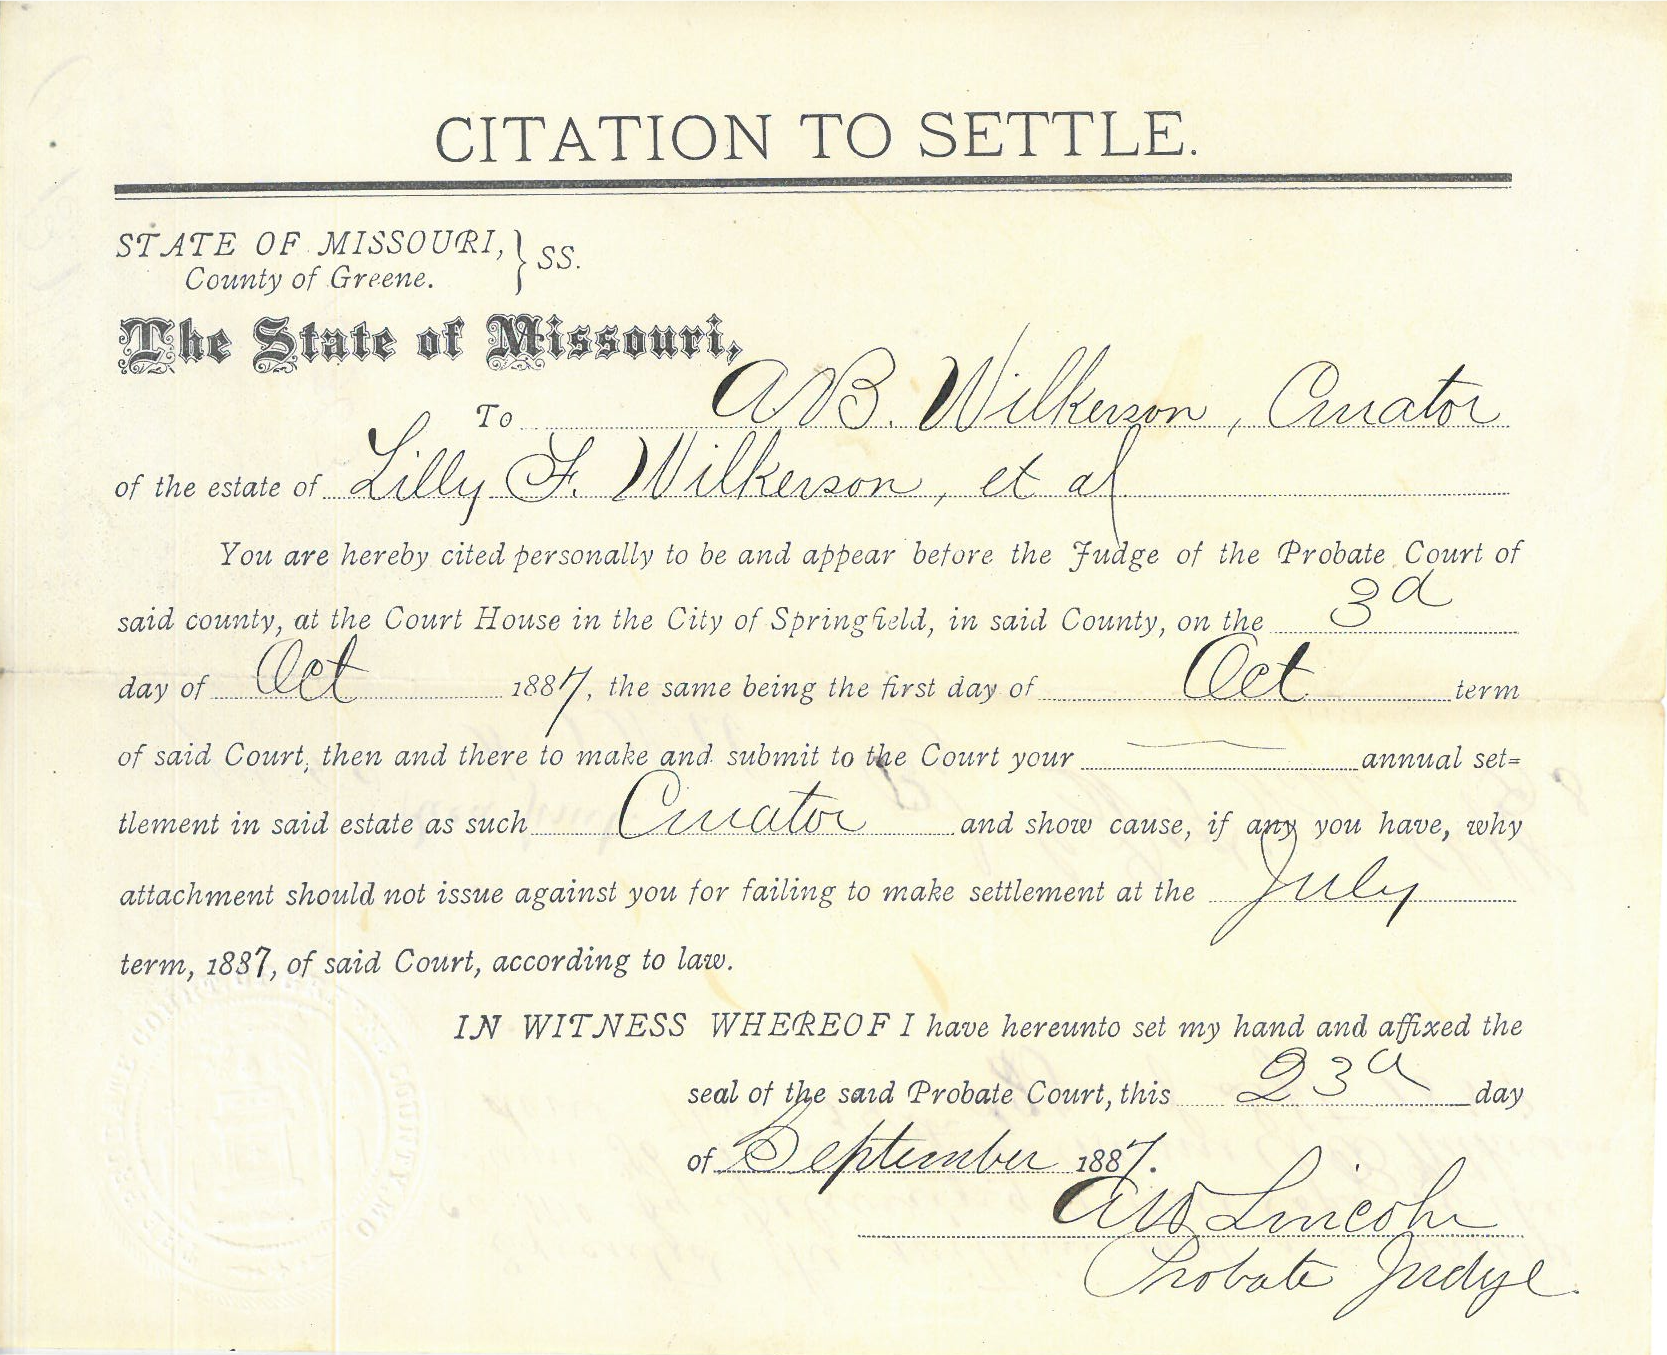 CITATION TO SETTLE.
STATE OF MISSOURI, } SS.
County of Greene.
The State of Missouri,
To A B. Wilkerson, Curator
of the estate of Lilly F. Wilkerson, et al
You are hereby cited personally to be and appear before the Judge of the Probate Court of
said county, at the Court House in the City of Springfield, in said County, on the 3d
day of Oct 1887, the same being the first day of Oct term
of said Court, then and there to make and submit to the Court your — annual set=
tlement in said estate as such Curator and show cause, if any you have, why
attachment should not issue against you for failing to make settlement at the July
term, 1887, of said Court, according to law.
IN WITNESS WHEREOF I have hereunto set my hand and affixed the
seal of the said Probate Court, this 23d day
of September 1887.
A W Lincoln
Probate Judge